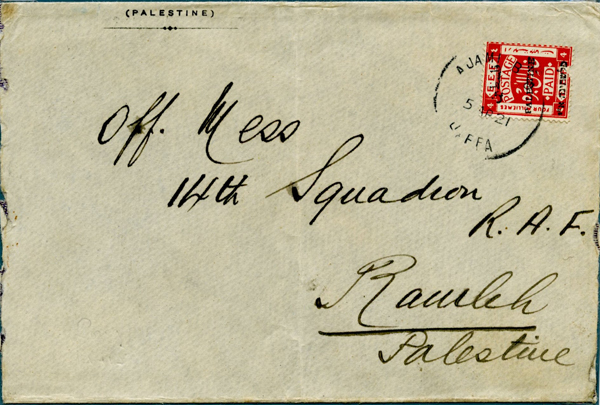 (PALESTINE)
AJAMI
5 21
JAFFA
E.E.F.
POSTAGE
PAID
FOUR MILLIEMES
Off. Mess
14th Squadron
R. A. F.
Ramleh
Palestine